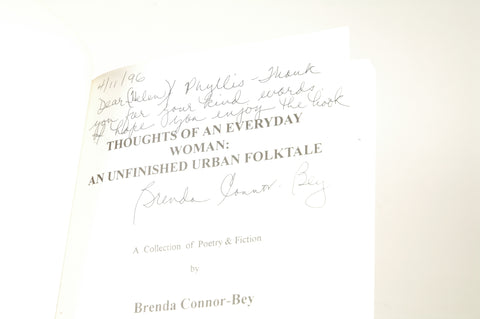 4/11/96
Dear (Helen) Phyllis - Thank
you for your kind words
I hope you enjoy the book
THOUGHTS OF AN EVERYDAY
WOMAN:
AN UNFINISHED URBAN FOLKTALE
Brenda Connor-Bey
A Collection of Poetry & Fiction
by
Brenda Connor-Bey